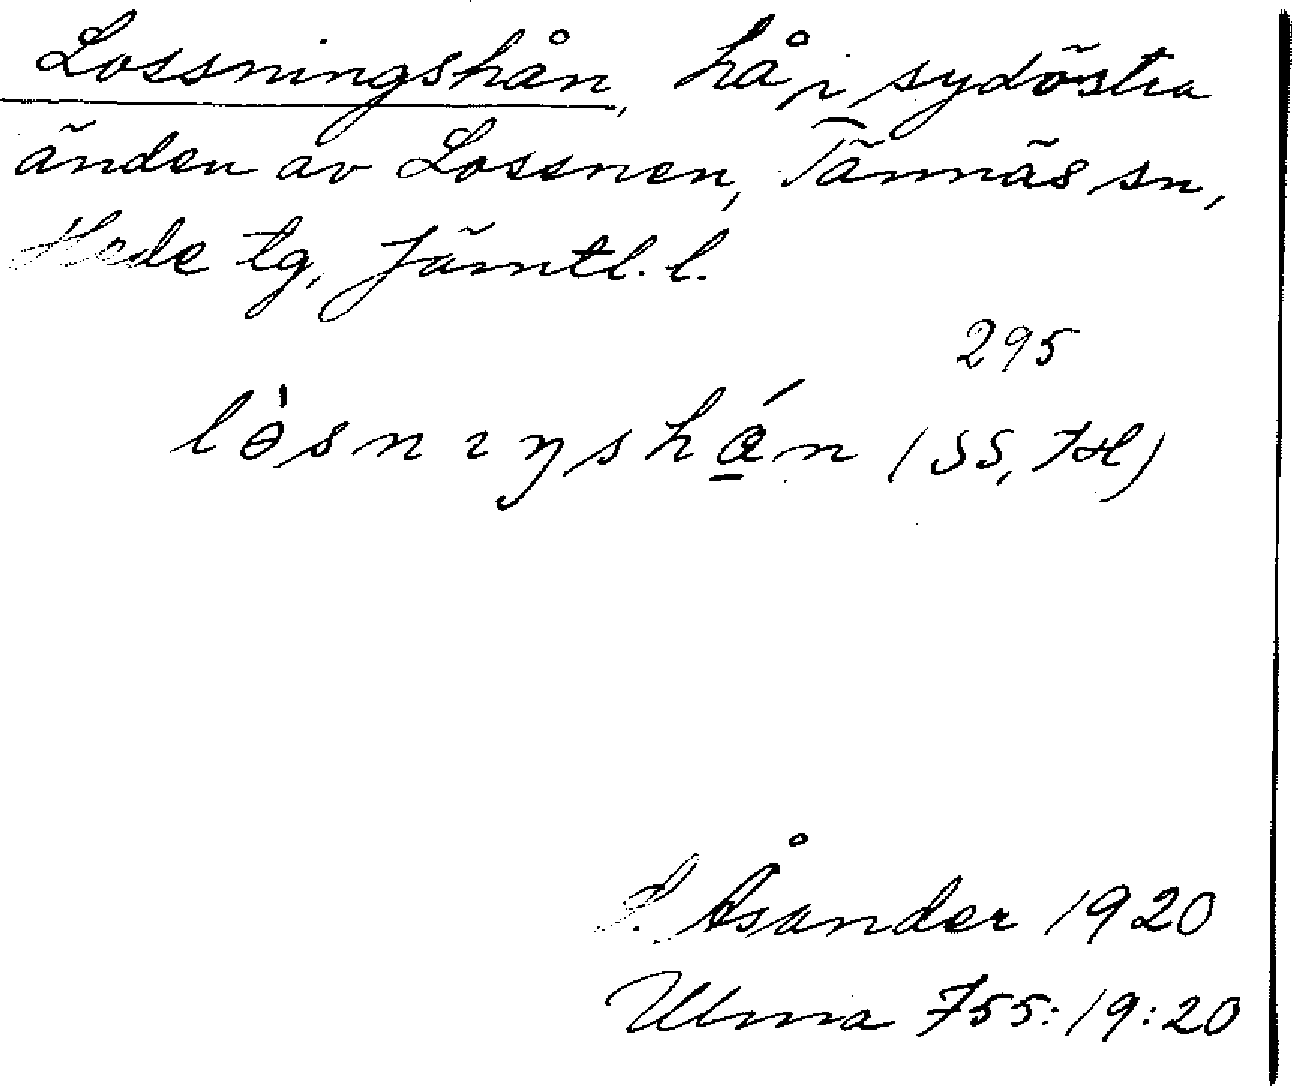 Lossningshån, hå i sydöstra
änden av Lossnen, Tännäs sn,
Hede tg, Jämtl. l.
295
lòsnıŋshán (SS, TH)
Åsander 1920
Ulma 755:19:20